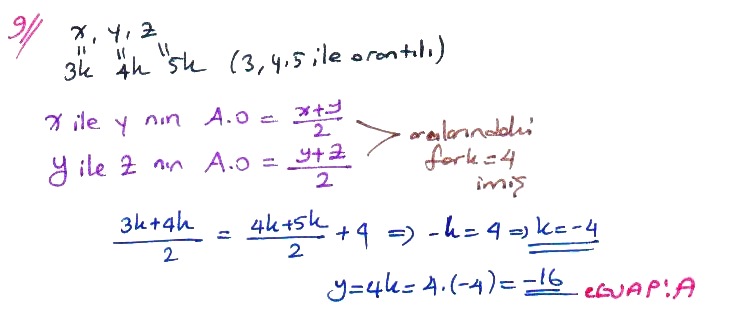 9//
x, y, z
3k 4k 5k (3,4,5 ile orantılı)
x ile y nın A.O = x+y/2
y ile z nın A.O = y+z/2
aralarındaki fark=4 imiş
3k+4k/2 = 4k+5k/2 + 4 ⇒ -k=4 ⇒ k=-4
y=4k=4.(-4)=-16 CEVAP:A